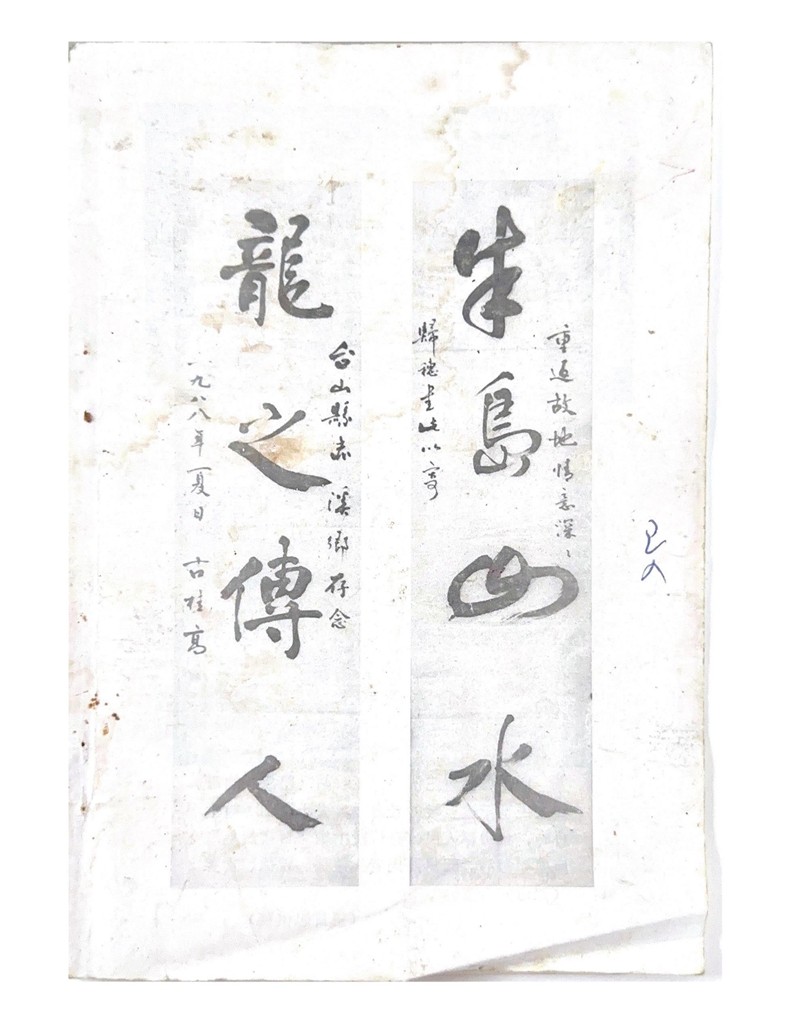 重返故地情意深〻
朱島山水
歸穗書此以寄
台山縣赤溪鄉存念
龍之傳人
一九八八年夏日 古桂高